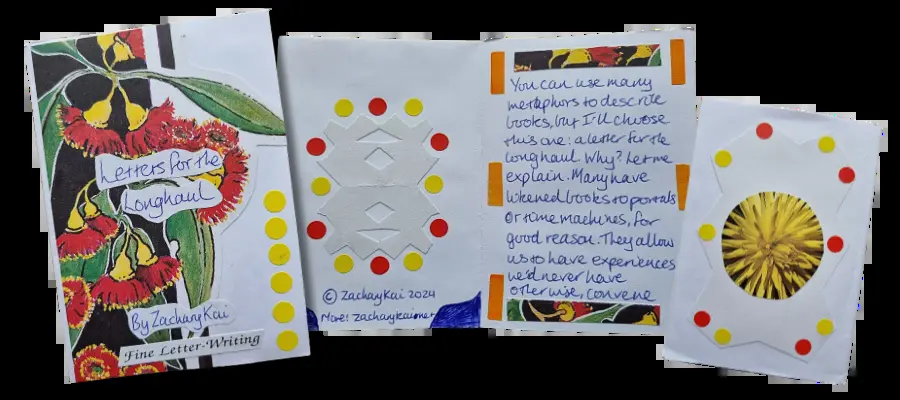 Letters for the
Longhaul
By Zachary Kai
Fine Letter-Writing
© Zachary Kai 2024
More: zacharykai.net
You can use many
metaphors to describe
books, but I'll choose
this one: a letter for the
longhaul. Why? Let me
explain. Many have
likened books to portals
or time machines, for
good reason. They allow
us to have experiences
we'd never have
otherwise, convene